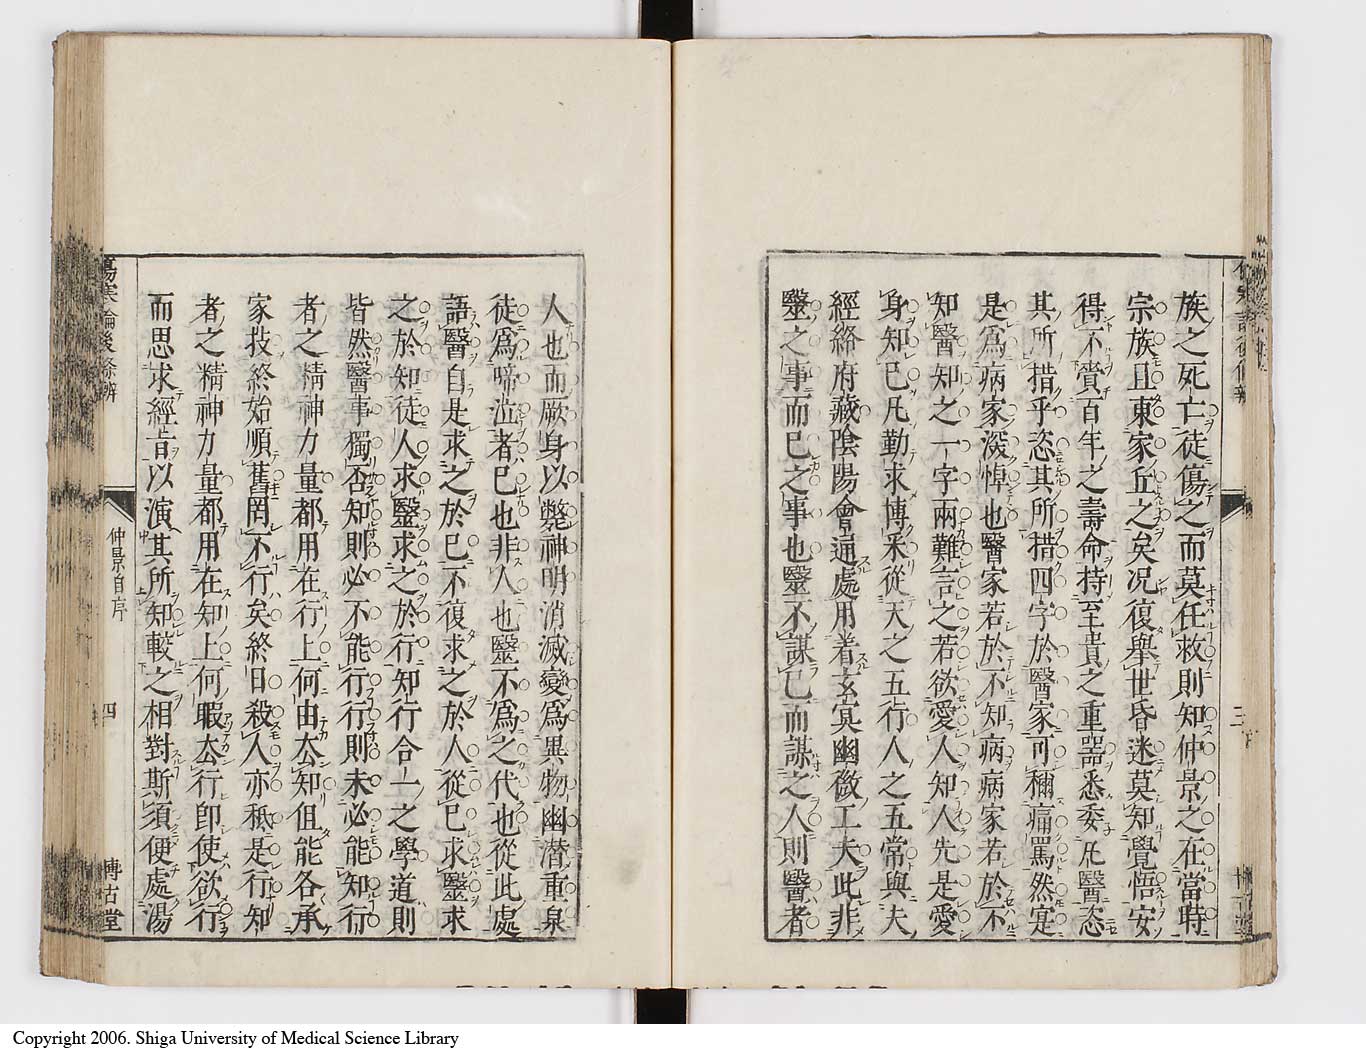 族之死亡徒傷之而莫任救則知仲景之在當時
宗族且東家丘之矣况復舉世昏迷莫知覺悟安
得不賷百年之壽命持至貴之重器悉委凡醫恣
其所措乎恣其所措四字於醫家可稱痛罵然寔
是爲病家深悼也醫家若於不知病病家若於不
知醫知之一字兩難言之若欲愛人知人先是愛
身知已凡勤求博采從天之五行人之五常與夫
經絡府藏陰陽會通處用着玄冥幽微工夫此非
毉之事而已之事也毉不謀已而謀之人則醫者
人也而厥身以斃神明消滅變爲異物幽潛重泉
徒爲啼泣者已也非人也毉不爲之代也從此處
語醫自是求之於已不復求之於人從已求毉求
之於知徒人求毉求之於行知行合一之學道則
皆然醫事獨否知則必不能行行則未必能知行
者之精神力量都用在行上何由厺知伹能各承
家技終始順舊罔不行矣終日殺人亦秪是行知
者之精神力量都用在知上何暇厺行卽使欲行
而思求經旨以演其所知較之相對斯須便處湯
傷寒論後條辨
仲景自序
四
博古堂
Copyright 2006. Shiga University of Medical Science Library